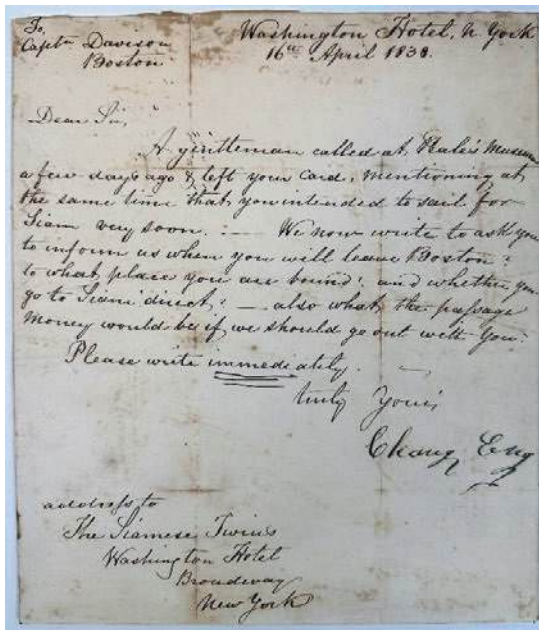 To,
Captn Davison
Boston
Washington Hotel, N. York
16th April 1838.
Dear Sir,
A gentleman called at Peale's Museum
a few days ago & left your card, mentioning at
the same time that you intended to sail for
Siam very soon. :— We now write to ask you
to inform us when you will leave Boston :
to what place you are bound : and whether you
go to Siam direct : — also what the passage
money would be if we should go out with you.
Please write immediately. —
truly Yours
Chang Eng
address to
The Siamese Twins
Washington Hotel
Broadway
New York